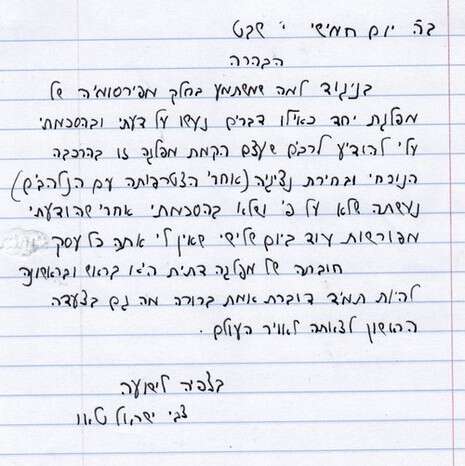 בה יום חמישי י' שבט
הבהרה
בניגוד למה שמשתמע בחלק מפירסומיה של
מפלגת יחד כאילו דברים נעשו על דעתי ובהסכמתי
עלי להודיע לרבים שעצם הקמת מפלגה זו בהרכבה
הנוכחי ובחירת נציגיה (אחרי הצטרפותה עם הנלהבים)
נעשתה שלא על פי ושלא בהסכמתי אחרי שהודעתי
מפורשות עוד ביום שלישי שאין לי אתה כל עסק
חובתה של מפלגה דתית היא בראש ובראשונה
להיות תמיד דוברת אמת ברורה מה גם בצעדה
הראשון לצאתה לאויר העולם.
בצפיה לישועה
צבי ישראל טאו